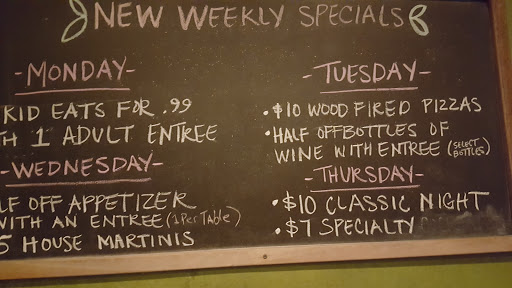 NEW WEEKLY SPECIALS
-MONDAY-
KID EATS FOR .99
1 ADULT ENTREE
-WEDNESDAY-
OFF APPETIZER
WITH AN ENTREE (1 Per Table)
5 HOUSE MARTINIS
-TUESDAY-
• $10 WOOD FIRED PIZZAS
• HALF OFF BOTTLES OF
WINE WITH ENTREE (SELECT BOTTLES)
-THURSDAY-
• $10 CLASSIC NIGHT
• $7 SPECIALTY